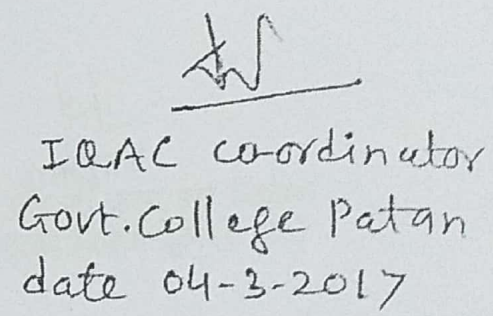 IQAC co-ordinator
Govt. College Patan
date 04-3-2017